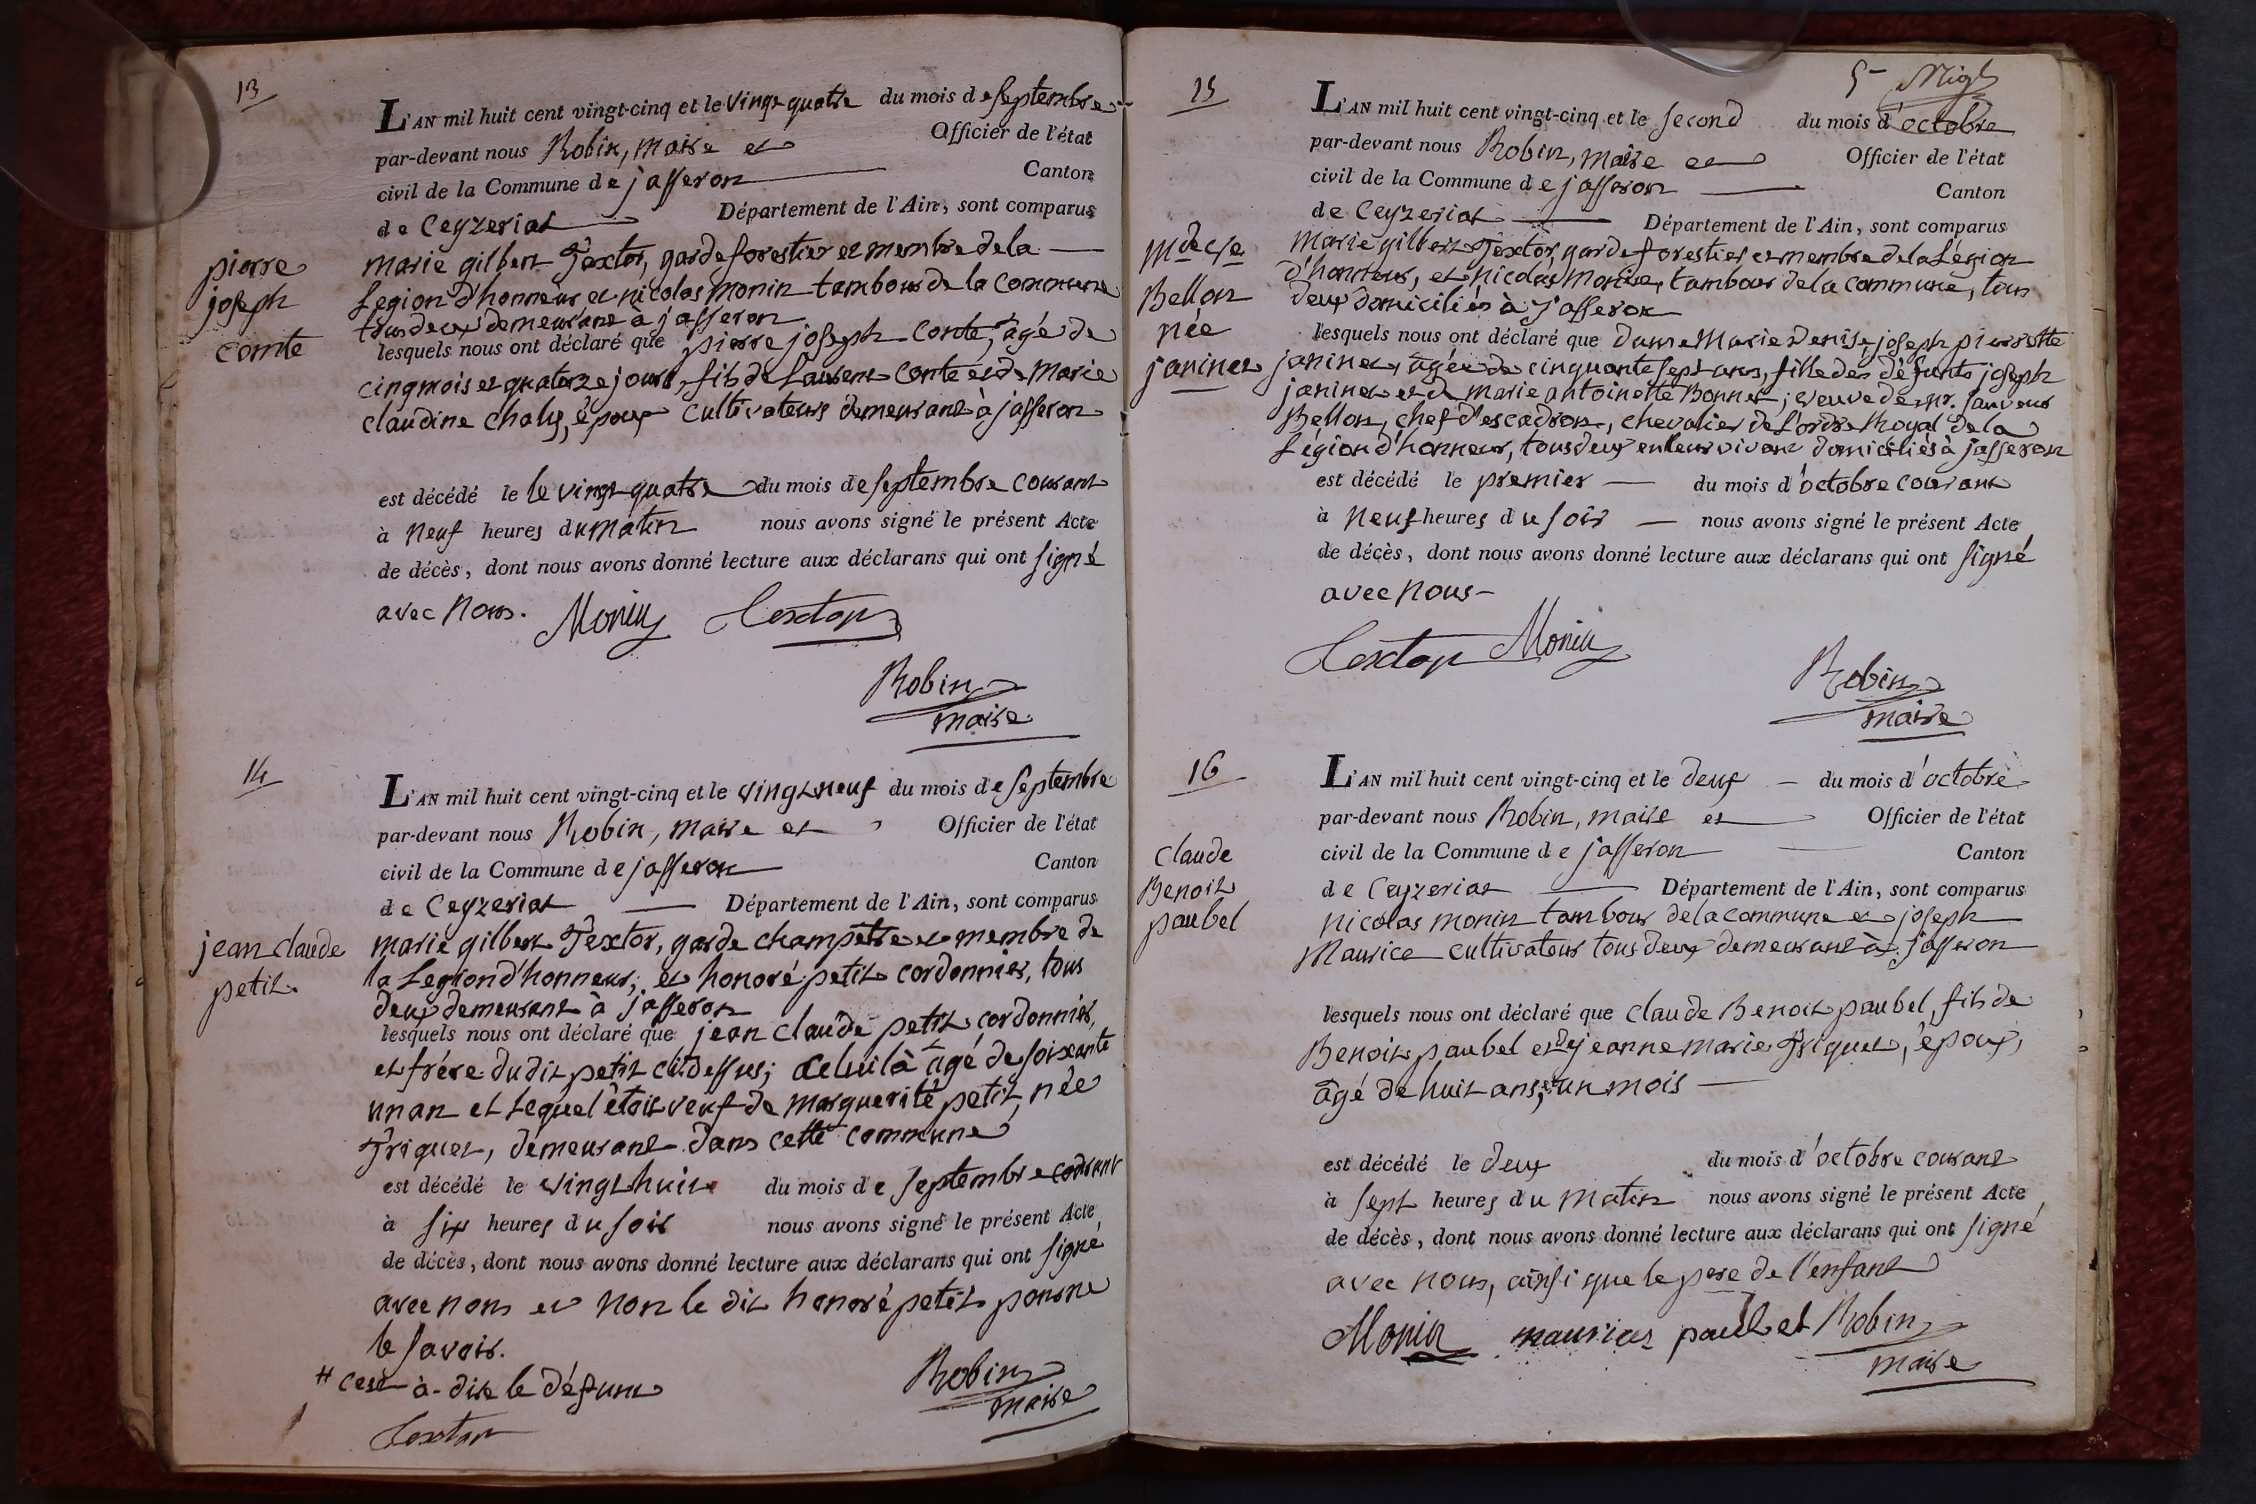 13
L'AN mil huit cent vingt-cinq et le vingt quatre du mois de septembre
par-devant nous Robin, maire et Officier de l'état
civil de la Commune de jasseron Canton
de Ceyzeriat Département de l'Ain, sont comparus
marie gilbert Textor, garde forestier et membre de la
Légion d'honneur et nicolas monin tambour de la commune
tous deux demeurant à jasseron
pierre
joseph
comte
lesquels nous ont déclaré que pierre joseph Conte, âgé de
cinq mois et quatorze jours, fils de Laurent Conte et de Marie
claudine chaly, époux cultivateurs demeurant à jasseron
est décédé le le vingt quatre du mois de septembre courant
à neuf heures du matin nous avons signé le présent Acte
de décès, dont nous avons donné lecture aux déclarans qui ont signé
avec nous. Monin Textor
Robin
maire
14
L'AN mil huit cent vingt-cinq et le vingt neuf du mois de septembre
par-devant nous Robin, maire et Officier de l'état
civil de la Commune de jasseron Canton
de Ceyzeriat Département de l'Ain, sont comparus
jean claude
petit.
marie gilbert Textor, garde champêtre et membre de
la Legion d'honneur; et honoré petit cordonnier, tous
deux demeurant à jasseron
lesquels nous ont déclaré que jean claude petit cordonnier,
et frère du dit petit ci dessus; celui là # âgé de soixante
un an et lequel étoit veuf de marguerite petit, née
Triquet, demeurant dans cette commune
est décédé le vingt huit du mois de septembre courant
à six heures du soir nous avons signé le présent Acte,
de décès, dont nous avons donné lecture aux déclarans qui ont signé
avec nous et non le dit honoré petit pour ne
le savoir.
# c'est-à-dire le défunt
Robin
maire
Textor
5
15
L'AN mil huit cent vingt-cinq et le second du mois d'octobre
par-devant nous Robin, maire et Officier de l'état
civil de la Commune de jasseron Canton
de Ceyzeriat Département de l'Ain, sont comparus
marie gilbert Textor, garde forestier et membre de la Légion
d'honneur, et nicolas monin, tambour de la commune, tous
deux domiciliés à Jasseron
Bellon
née
janinet
lesquels nous ont déclaré que dame Marie Denise joseph pierrette
janinet, âgée de cinquante sept ans, fille des défunts joseph
janinet et de marie antoinette Bonnet; veuve de mr. sauveur
Bellon, chef d'escadron, chevalier de l'ordre Royal de la
Légion d'honneur, tous deux en leur vivant domiciliés à jasseron
est décédé le premier du mois d'octobre courant
à neuf heures du soir nous avons signé le présent Acte
de décès, dont nous avons donné lecture aux déclarans qui ont signé
avec nous
Textor Monin
Robin
maire
16
L'AN mil huit cent vingt-cinq et le deux du mois d'octobre
par-devant nous Robin, maire et Officier de l'état
civil de la Commune de jasseron Canton
de Ceyzeriat Département de l'Ain, sont comparus
claude
Benoit
paubel
nicolas monin tambour de la commune et joseph
Maurice cultivateur tous deux demeurant à jasseron
lesquels nous ont déclaré que claude Benoit paubel, fils de
Benoit paubel et de jeanne marie Triquet, époux,
âgé de huit ans, et un mois
est décédé le deux du mois d'octobre courant
à sept heures du matin nous avons signé le présent Acte
de décès, dont nous avons donné lecture aux déclarans qui ont signé
avec nous, ainsi que le pere de l'enfant
Monin maurices paubel Robin
maire